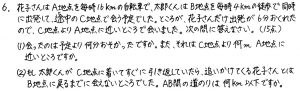 6. 花子さんはA地点を毎時16kmの自転車で、太郎くんはB地点を毎時4kmの徒歩で同時
に出発して、途中のC地点で会う予定でした。ところが、花子さんだけ出発が6分おくれた
ので、C地点よりA地点に近いところで会いました。次の問に答えなさい。(15点)
(1) 会ったのは予定より何分おそかったですか。また、それはC地点より何mA地点に
近いところですか。
(2) もし太郎くんがC地点に着いてすぐに引き返していたら、追いかけてくる花子さんとは
B地点に戻るまでに会えないところでした。AB間の道のりは何km以下ですか。